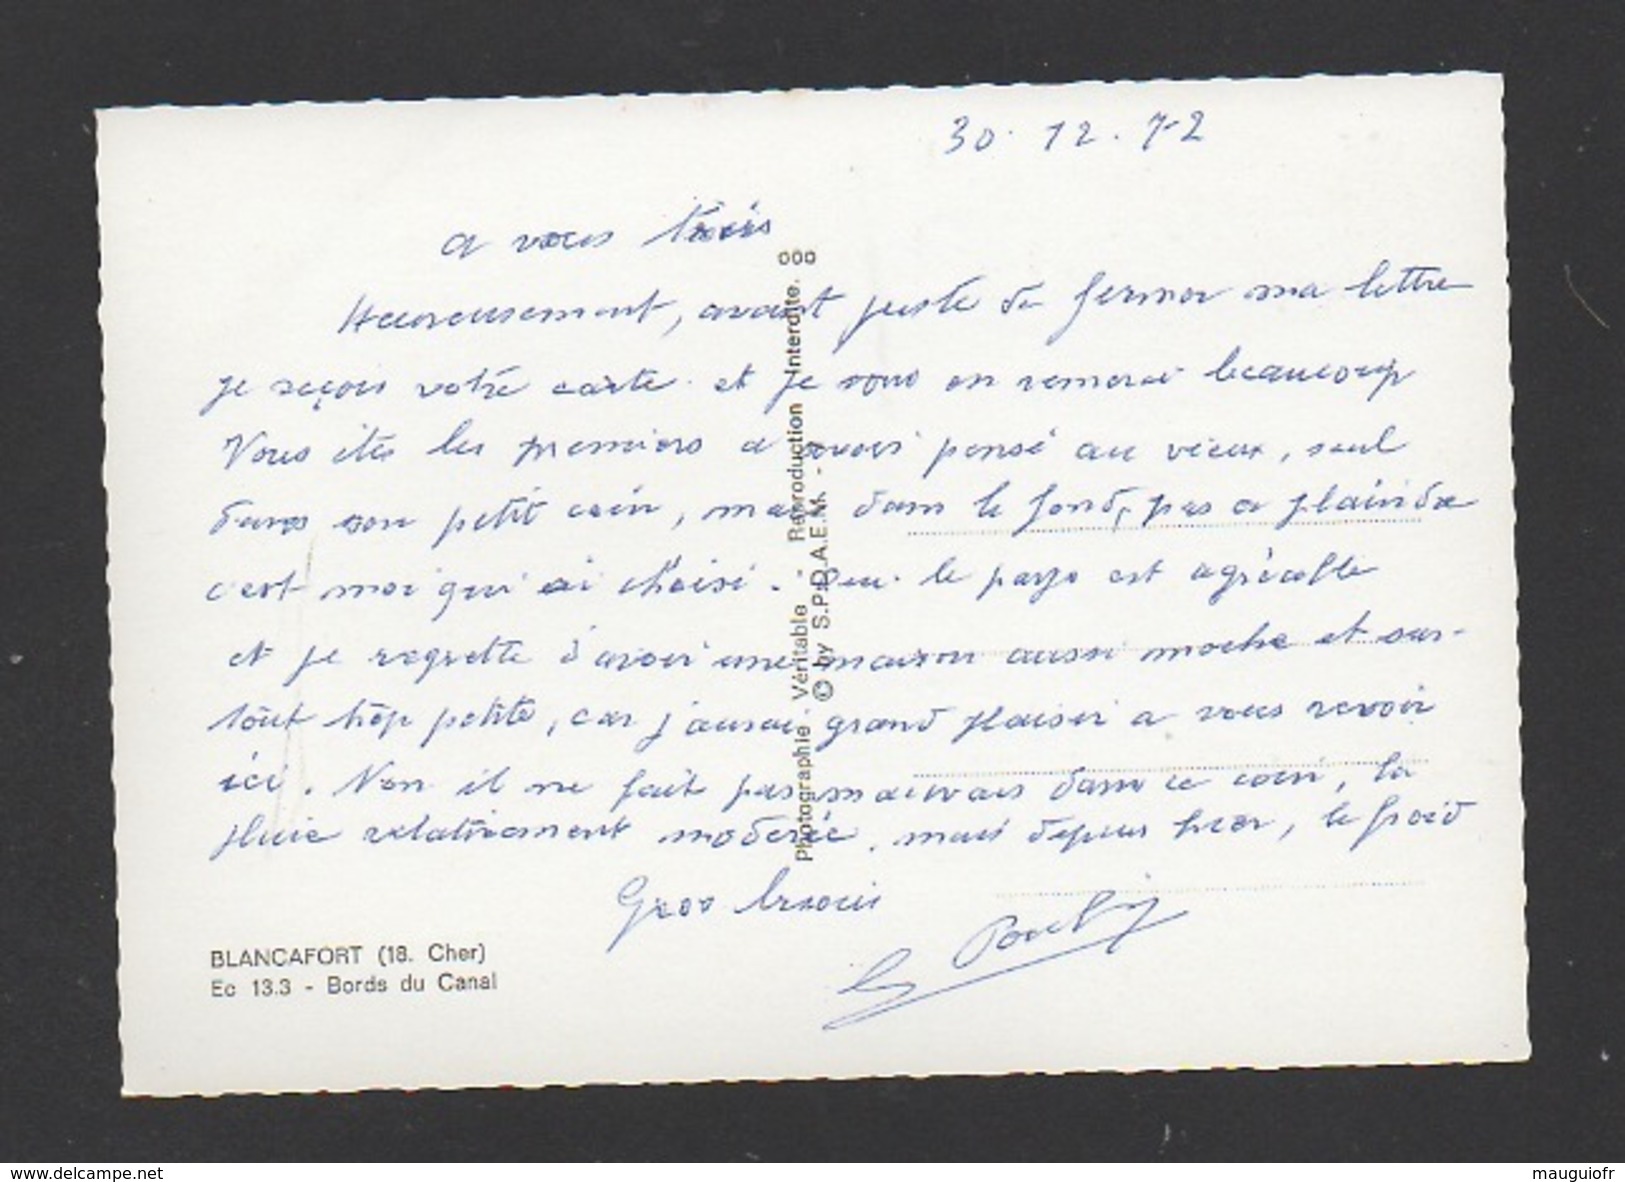 30.12.72
a vous trois
Heureusement, avant juste de fermer ma lettre
je reçois votre carte. et je vous en remercie beaucoup
Vous êtes les premiers a avoir pensé au vieux, seul
dans son petit coin, mais dans le fond, pas a plaindre
c'est moi qui ai choisi. le pays est agréable
et je regrette d'avoir une maison aussi moche et sur-
tout trop petite, car j'aurai grand plaisir a vous revoir
ici. Non il ne fait pas mauvais dans ce coin, la
pluie relativement modérée. mais depuis hier, le froid
Gros baisers
BLANCAFORT (18. Cher)
Ec 13.3 - Bords du Canal
000
Photographie Véritable - Reproduction Interdite.
© by S.P.D.A.E.M. -
www.delcampe.net
mauguiofr